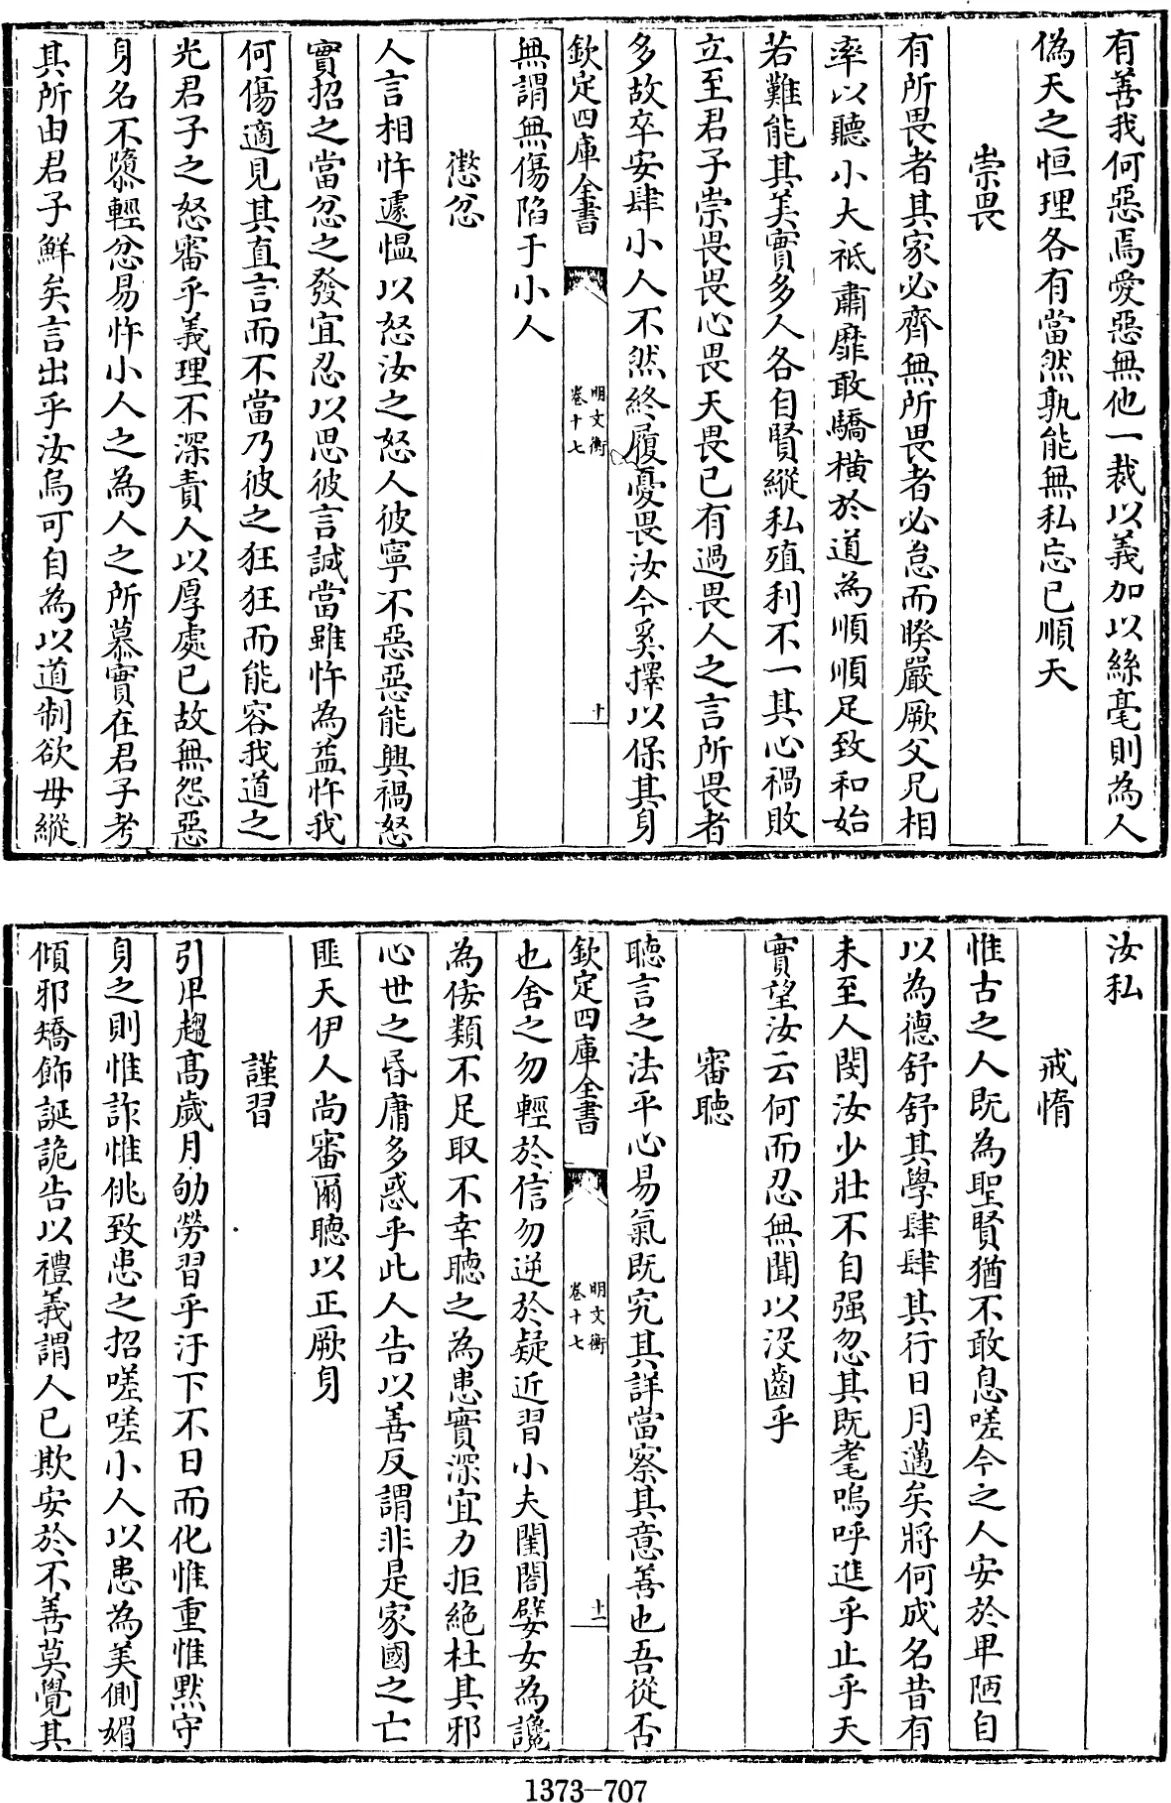 有善我何惡焉愛惡無他一裁以義加以絲毫則為人
偽天之恒理各有當然孰能無私忘己順天
崇畏
有所畏者其家必齊無所畏者必怠而睽嚴厥父兄相
率以聽小大祗肅靡敢驕橫於道為順順足致和始
若難能其美實多人各自賢縱私殖利不一其心禍敗
立至君子崇畏畏心畏天畏己有過畏人之言所畏者
多故卒安肆小人不然終履憂畏汝今奚擇以保其身
欽定四庫全書
明文衡
卷十七
十
無謂無傷陷于小人
懲忿
人言相忤遽愠以怒汝之怒人彼寧不惡惡能興禍怒
實招之當忿之發宜忍以思彼言誠當雖忤為益忤我
何傷適見其直言而不當乃彼之狂狂而能容我道之
光君子之怒審乎義理不深責人以厚處己故無怨惡
身名不隳輕忿易忤小人之為人之所慕實在君子考
其所由君子鮮矣言出乎汝烏可自為以道制欲毋縱
汝私
戒惰
惟古之人既為聖賢猶不敢息嗟今之人安於卑陋自
以為德舒舒其學肆肆其行日月邁矣將何成名昔有
未至人閔汝少壯不自强忽其既耄嗚呼進乎止乎天
實望汝云何而忍無聞以沒齒乎
審聽
聽言之法平心易氣既究其詳當察其意善也吾從否
欽定四庫全書
明文衡
卷十七
十一
也舍之勿輕於信勿逆於疑近習小夫閨閤嬖女為讒
為佞類不足取不幸聽之為患實深宜力拒絶杜其邪
心世之昏庸多惑乎此人告以善反謂非是家國之亡
匪天伊人尚審爾聽以正厥身
謹習
引卑趨高歲月劬勞習乎汙下不日而化惟重惟默守
身之則惟詐惟佻致患之招嗟嗟小人以患為美側媚
傾邪矯飾誕詭告以禮義謂人已欺安於不善莫覺其
1373-707